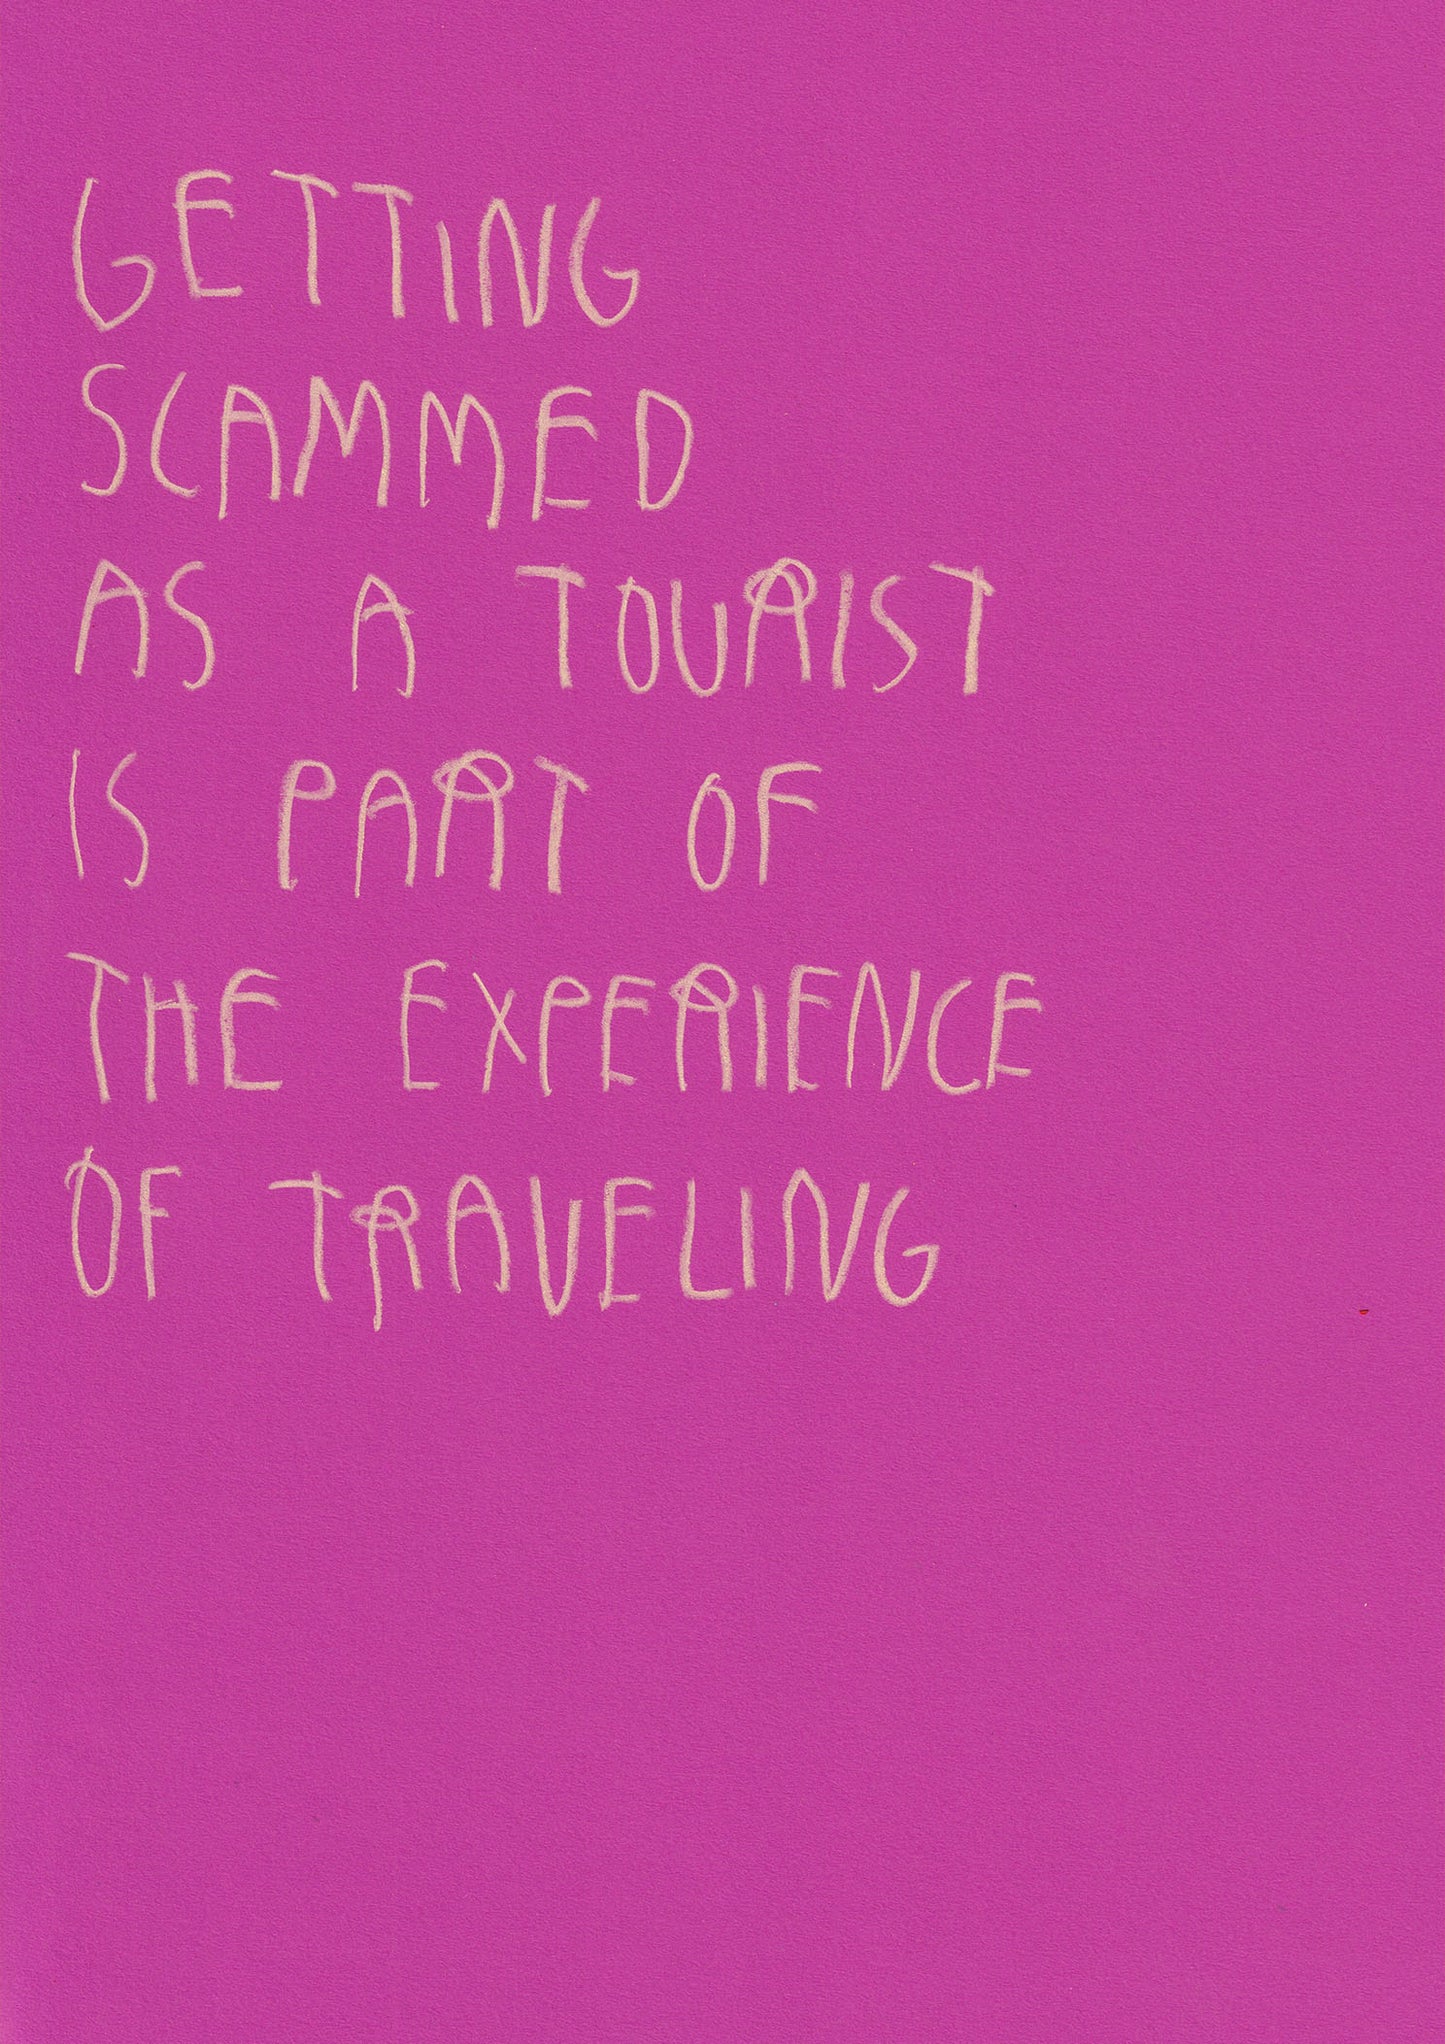 GETTING
SCAMMED
AS A TOURIST
IS PART OF
THE EXPERIENCE
OF TRAVELING